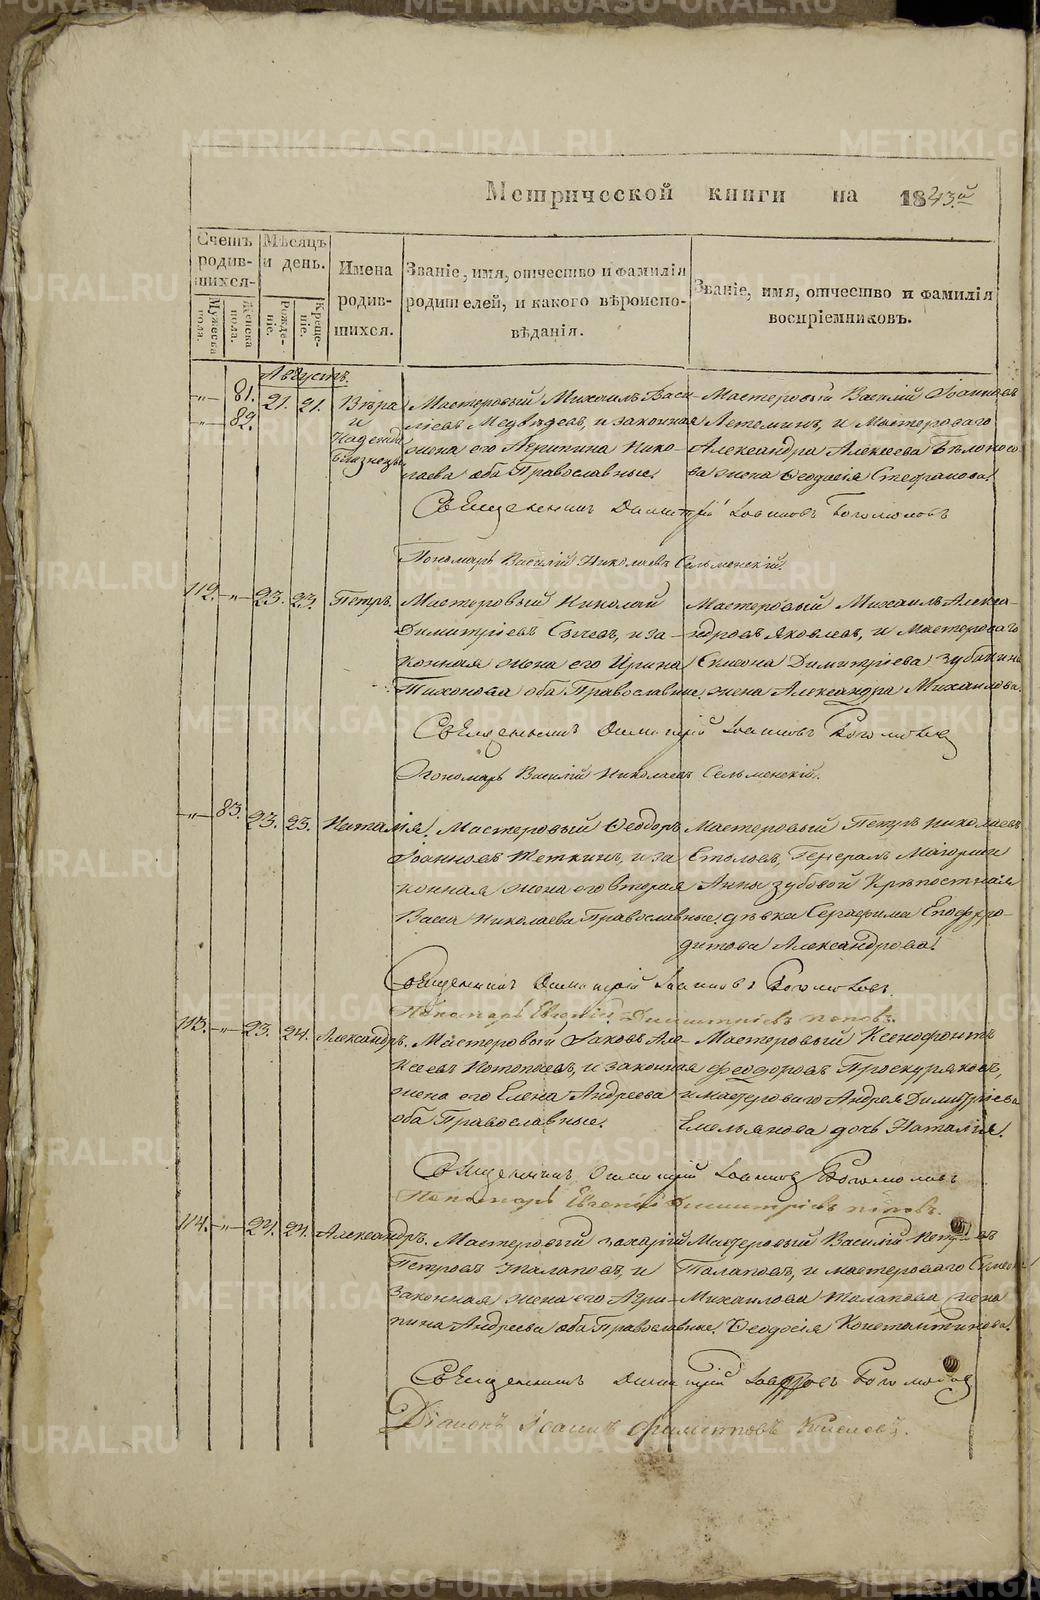 METRIKI.GASO-URAL.RU
Метрической книги на 1843.й
Счетъ родив-шихся.
Мужеска пола.
Женска пола.
Мѣсяцъ и день.
Рожде-ніе.
Креще-ніе.
Имена родив-шихся.
Званіе, имя, отчество и фамилія родителей, и какого вѣроиспо-вѣданія.
Званіе, имя, отчество и фамилія воспріемниковъ.
Августъ.
81. 82. 21. 21. Вѣра и Надежда близнецы
Мастеровый Михаилъ Васи-
льевъ Медвѣдевъ, и законная
жена его Агрипина Нико-
лаева оба Православные.
Мастеровый Василій Іоанновъ
и Мастероваго
Александра Алексеева Бѣлоносо-
ва жена Ѳеодосія Стефанова.
Священникъ Димитрій Іоанновъ Богомоловъ
Пономарь Василій Николаевъ Сельменскій.
112. 23. 23. Петръ.
Мастеровый Николай
Димитріевъ и за-
конная жена его Ирина
Тихонова оба Православные.
Мастеровый Михаилъ Алекса-
ндровъ Яковлевъ, и Мастероваго
Симеона Димитріева Зубакина
жена Александра Михайлова.
Священникъ Димитрій Іоанновъ Богомоловъ
Пономарь Василій Николаевъ Сельменскій.
83. 23. 23. Наталія.
Мастеровый Ѳеодоръ
Іоанновъ Теткинъ, и за
конная жена его вторая
Васса Николаева Православные.
Мастеровый Петръ Николаевъ
Столовъ, Генералъ Маіорши
Анны Зубовой Крѣпостная
дѣвка Серафима Епафро-
дитова Александрова.
Священникъ Димитрій Іоанновъ Богомоловъ.
Пономарь Евгеній Димитріевъ Поповъ.
113. 23. 24. Александръ.
Мастеровый Іаковъ Але-
ксеевъ Потопаевъ, и законная
жена его Елена Андреева
оба Православные.
Мастеровый Ксенофонтъ
Феодоровъ Проскуряковъ,
и мастероваго Андрея Димитріева
Емельянова дочь Наталія.
Священникъ Димитрій Іоанновъ Богомоловъ
Пономарь Евгеній Димитріевъ Поповъ.
114. 24. 24. Александръ.
Мастеровый Захарій
Петровъ Талаповъ, и
законная жена его Агри-
пина Андреева оба Православные.
Мастеровый Василій Петровъ
Талаповъ, и мастероваго Симеона
Михайлова Талапова жена
Ѳеодосія Константинова.
Священникъ Димитрій Іоанновъ Богомоловъ
Діаконъ Іоаннъ Киселевъ.